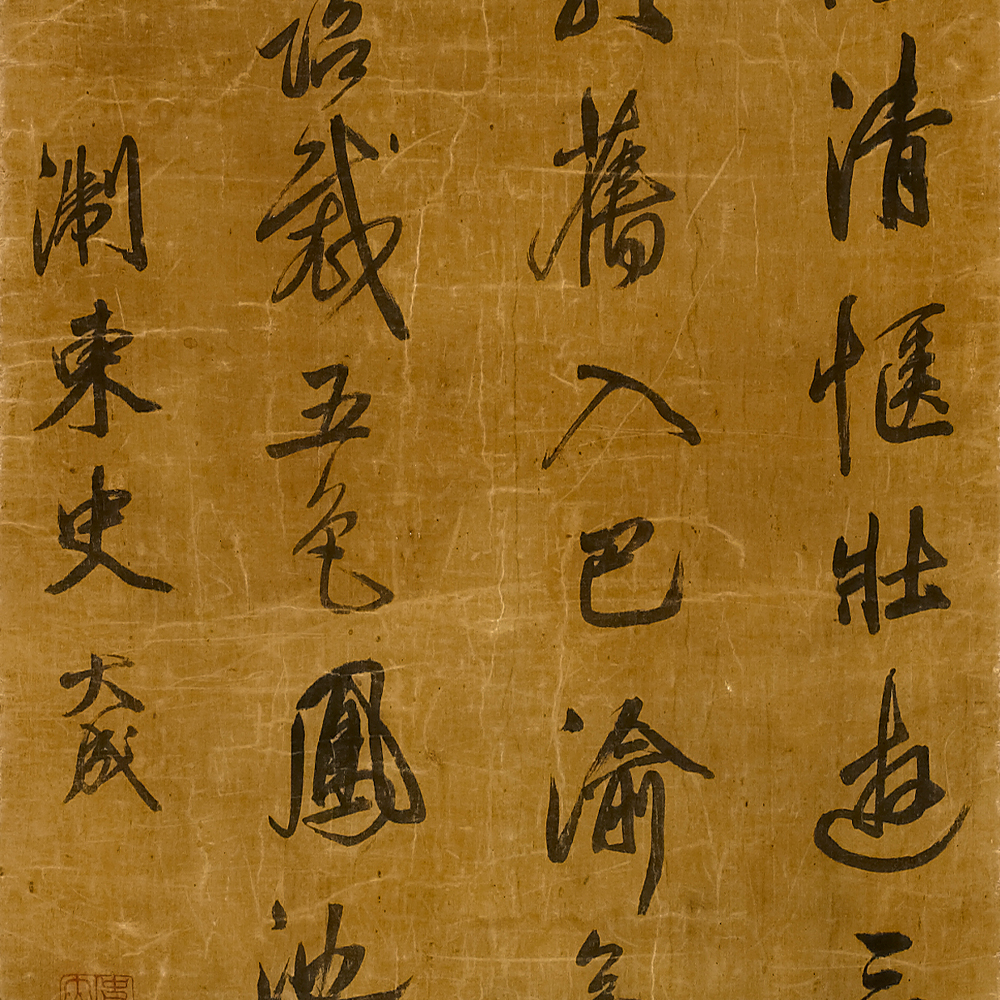 清愜壯遊三
舊入巴渝
裁五色鳳池
東史大成